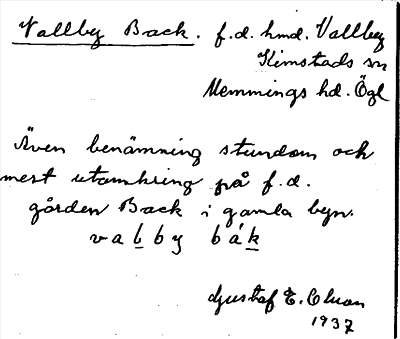 Vallby Back. f.d. hmd. Vallby
Kimstads sn
Memmings hd. Ögl
Även benämning stundom och
mest utomkring på f.d.
gården Back i gamla byn.
vabby båk
Gustaf E.
1937